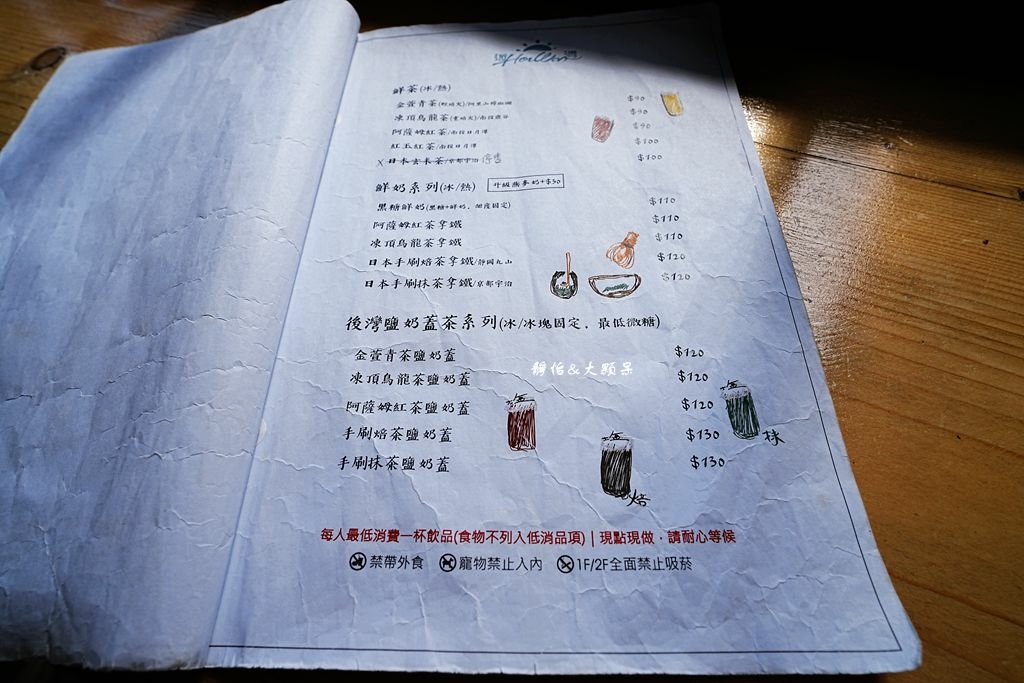 鮮茶(冰/熱)
金萱青茶(輕焙火)/阿里山樟樹湖 $90
凍頂烏龍茶(重焙火)/南投鹿谷 $90
阿薩姆紅茶/南投日月潭 $90
紅玉紅茶/南投日月潭 $100
X 日本玄米茶/京都宇治 停售 $100
鮮奶系列(冰/熱) 升級燕麥奶+$30
黑糖鮮奶(黑糖+鮮奶，甜度固定) $110
阿薩姆紅茶拿鐵 $110
凍頂烏龍茶拿鐵 $110
日本手刷焙茶拿鐵/靜岡丸山 $120
日本手刷抹茶拿鐵/京都宇治 $120
後灣鹽奶蓋茶系列(冰/冰塊固定，最低微糖)
金萱青茶鹽奶蓋 $120
凍頂烏龍茶鹽奶蓋 $120
阿薩姆紅茶鹽奶蓋 $120
手刷焙茶鹽奶蓋 $130
抹
手刷抹茶鹽奶蓋 $130
焙
每人最低消費一杯飲品(食物不列入低消品項)｜現點現做，請耐心等候
禁帶外食 寵物禁止入內 1F/2F全面禁止吸菸